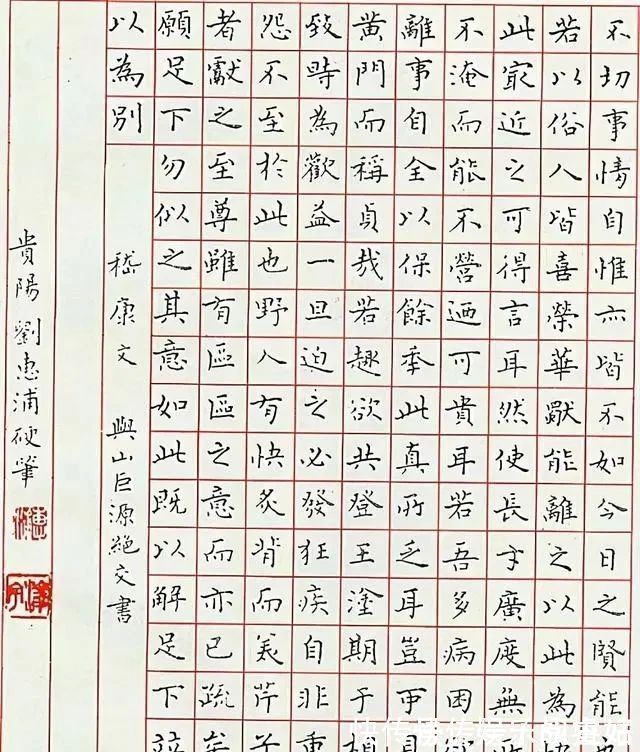 不切事情自惟亦皆不如今日之賢能
若以俗人皆喜榮華獨能離之以此為
此最近之可得言耳然使長才廣度無
不淹而能不營迺可貴耳若吾多病困
離事自全以保餘季此真所乏耳豈可見
黄門而稱貞哉若趣欲共登王塗期于相
致時為歡益一旦迫之必發狂疾自非重
怨不至於此也野人有快炙背而美芹子
者獻之至尊雖有區區之意而亦已疏
願足下勿似之其意如此既以解足下
以為別 嵇康文 與山巨源絕交書
貴陽劉惠浦硬筆